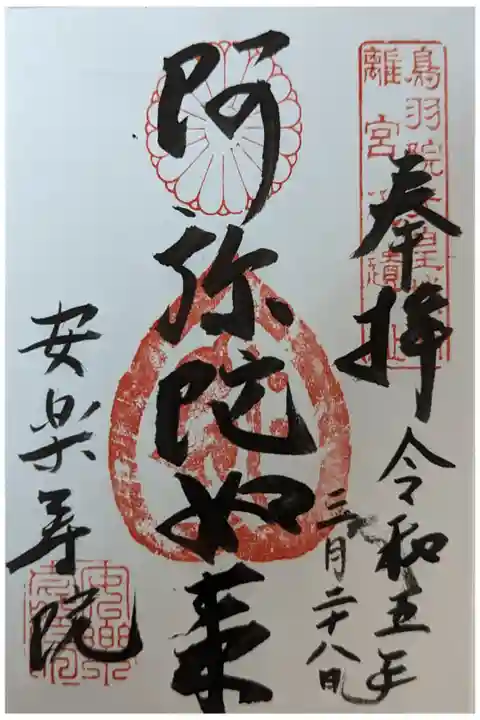 奉拝
令和五年
三月二十八日
阿弥陀如来
安楽寿院
鳥羽院
離宮